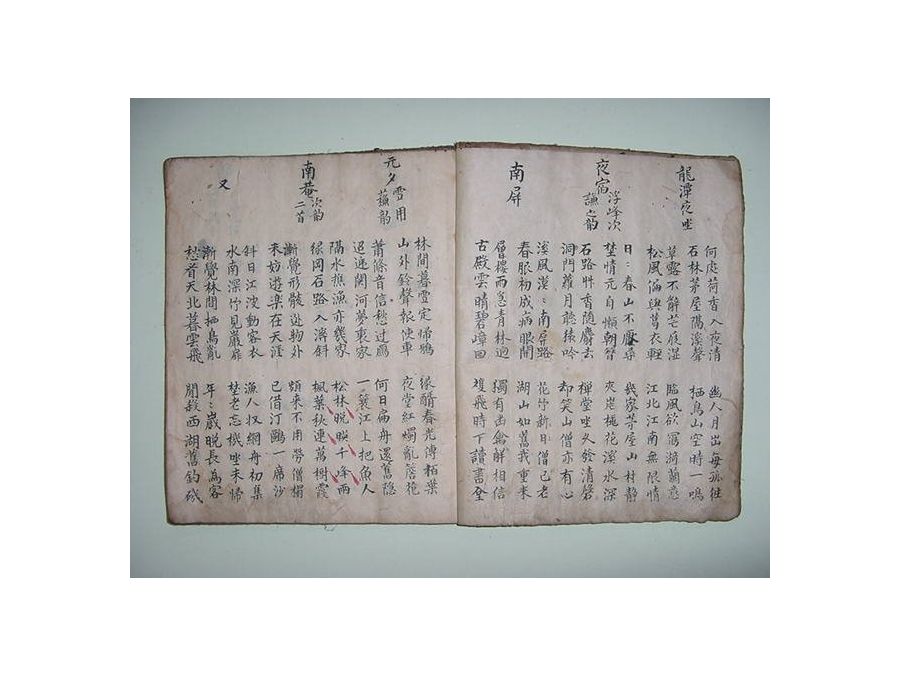 龍潭夜坐
何處荷香入夜清 幽人月出每孤往
石林茅屋隔溪聲 栖鳥山空時一鳴
草露不辭芒屐湿 臨風欲寫漪蘭意
松風偏與葛衣輕 江北江南無限情
夜宿浮峰次謙之韵
日〻春山不厭尋 幾家茅屋山村静
埜情元自懶朝簪 夾岸桃花溪水深
石路艸香随麝去 禪堂坐久發清磬
洞門蘿月聴猿吟 却笑山僧亦有心
南屏
溪風漠〻南屏路 花竹新日僧已老
春服初成病眼開 湖山如舊我重来
層樓雨急青林迥 獨有幽禽解相信
古殿雲晴碧嶂回 雙飛時下讀書臺
元夕雪用蘇韵
林間暮雪定帰鴉 緑醑春光傳柏葉
山外鈴聲報使車 夜堂紅燭亂簷花
蕭條音信愁过鴈 何日扁舟還舊隐
迢逓関河夢裏家 一蓑江上把魚人
南菴次韵二首
隔水樵漁亦幾家 松林晚映千峰雨
緑岡石路入溪斜 楓葉秋連萬樹霞
漸覺形骸逃物外 頻来不用勞僧榻
未妨遊楽在天涯 已借汀鷗一席沙
又
斜日江波動客衣 漁人収網舟初集
水南深竹見巖扉 埜老忘機坐未帰
漸覺林間栖鳥亂 年〻歳晚長為客
愁看天北暮雲飛 閒殺西湖舊釣磯